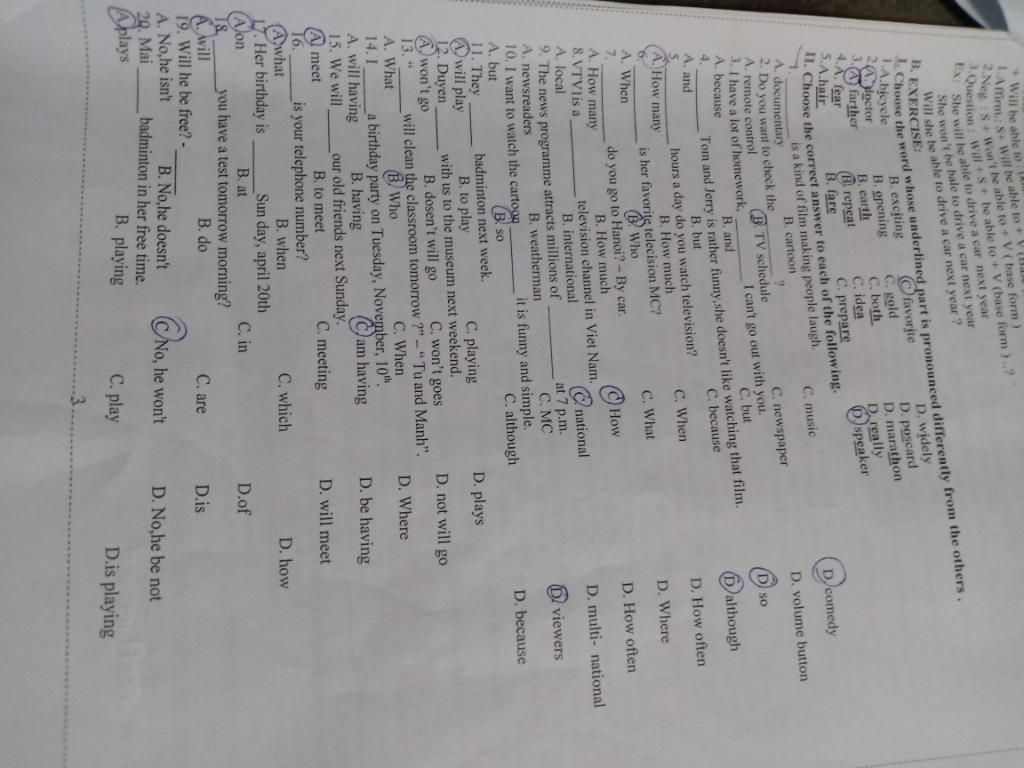 + Will be able to
1.Affirm.: S+ Will be able to + V ( base form )
2.Neg : S + Won't be able to + V (base form )
3.Question : Will + S + be able to + V (base form ) ..?
Ex: She will be able to drive a car next year
She won't be bale to drive a car next year
Will she be able to drive a car next year ?
B. EXERCISE:
I. Choose the word whose underlined part is pronounced differently from the others .
1.A.bicycle B. exciting C. favorite D. widely
2.A.doctor B. opening C. gold D. poscard
3.A. farther B. earth C. both D. marathon
4.A. fear B. repeat C. idea D. really
5.A.hair B. fare C. prepare D. speaker
II. Choose the correct answer to each of the following.
1. ______ is a kind of film making people laugh.
A. documentary B. cartoon C. music D. comedy
2. Do you want to check the ______ ?
A. remote control B. TV schedule C. newspaper D. volume button
3. I have a lot of homework, ______ I can't go out with you.
A. because B. and C. but D. so
4. ______ Tom and Jerry is rather funny,she doesn't like watching that film.
A. and B. but C. because D. although
5. ______ hours a day do you watch television?
A. How many B. How much C. When D. How often
6. ______ is her favorite television MC?
A. When B. Who C. What D. Where
7. ______ do you go to Hanoi? – By car.
A. How many B. How much C. How D. How often
8.VTV1 is a ______ television channel in Viet Nam.
A. local B. international C. national D. multi- national
9. The news programme attracts millions of ______ at 7 p.m.
A. newsreaders B. weatherman C. MC D. viewers
10. I want to watch the cartoon ______ it is funny and simple.
A. but B. so C. although D. because
11. They ______ badminton next week.
A. will play B. to play C. playing D. plays
12. Duyen ______ with us to the museum next weekend.
A. won't go B. dosen't will go C. won't goes D. not will go
13. “ ______ will clean the classroom tomorrow ?” – “ Tu and Manh”.
A. What B. Who C. When D. Where
14. I ______ a birthday party on Tuesday, November, 10th.
A. will having B. having C. am having D. be having
15. We will ______ our old friends next Sunday.
A. meet B. to meet C. meeting D. will meet
16. ______ is your telephone number?
A. what B. when C. which D. how
17. Her birthday is ______ Sun day, april 20th
A. on B. at C. in D.of
18. ______ you have a test tomorrow morning?
A. will B. do C. are D.is
19. Will he be free? - ______
A. No,he isn't B. No,he doesn't C. No, he won't D. No,he be not
20. Mai ______ badminton in her free time.
A. plays B. playing C. play D.is playing
3